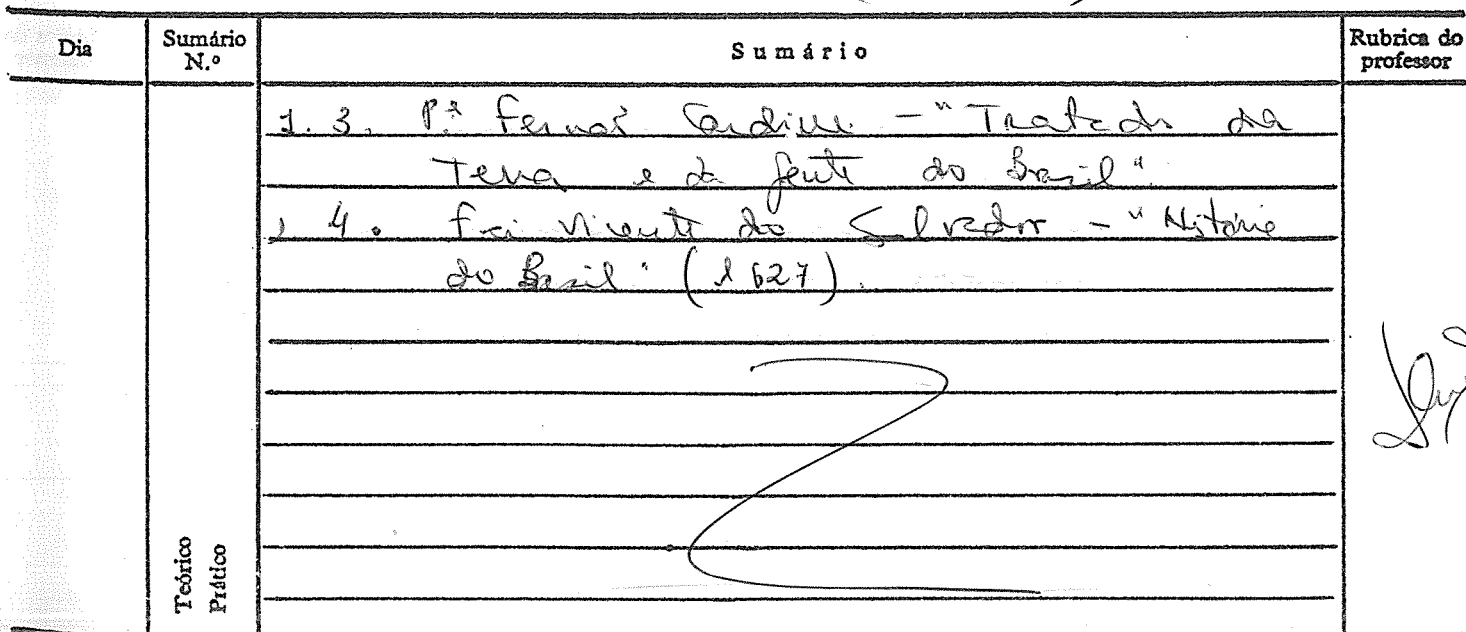 Dia
Sumário N.º
Sumário
Rubrica do professor
1.3. P.e Fernão Cardim - "Tratado da
Terra e da gente do Brasil".
1.4. Frei Vicente do Salvador - "História
do Brasil" (1627).
Teórico
Prático